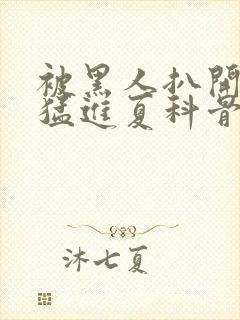 被黑人扒開
猛進夏科骨
沐七夏